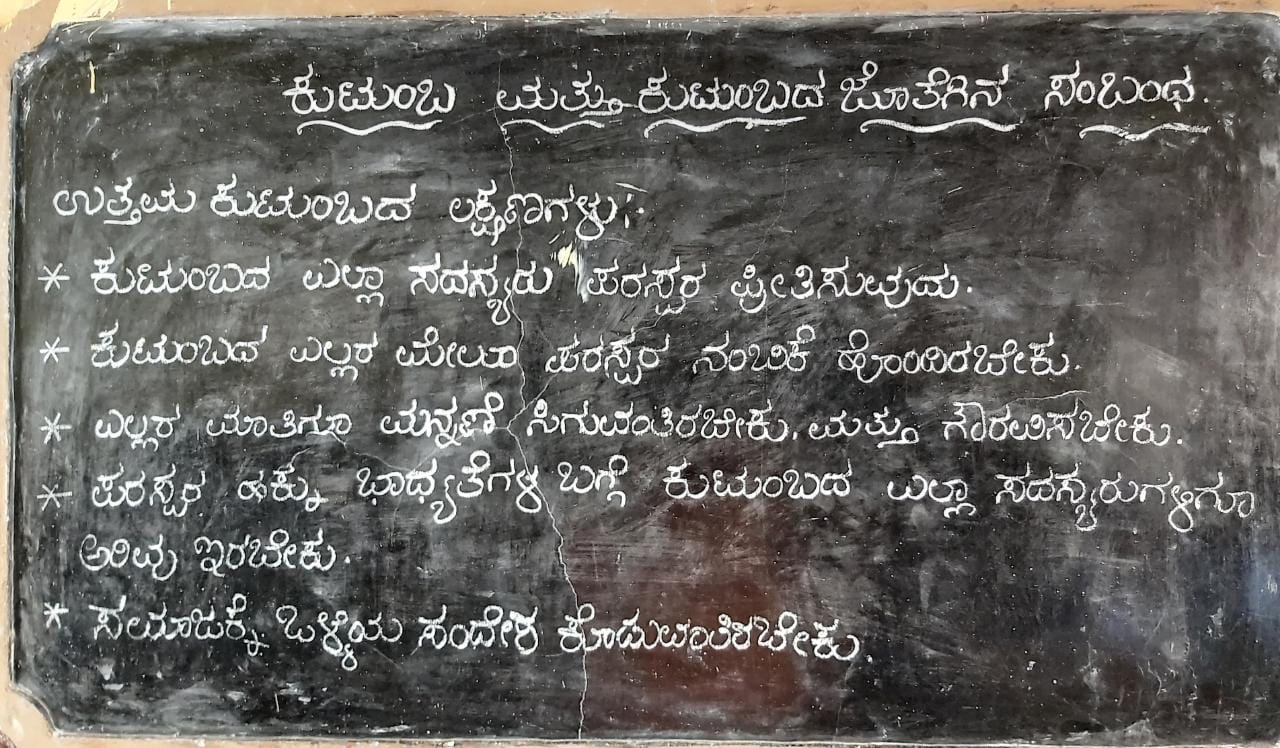 ಕುಟುಂಬ ಮತ್ತು ಕುಟುಂಬದ ಜೊತೆಗಿನ ಸಂಬಂಧ.
ಉತ್ತಮ ಕುಟುಂಬದ ಲಕ್ಷಣಗಳು:-
* ಕುಟುಂಬದ ಎಲ್ಲಾ ಸದಸ್ಯರು ಪರಸ್ಪರ ಪ್ರೀತಿಸುವುದು.
* ಕುಟುಂಬದ ಎಲ್ಲರ ಮೇಲೂ ಪರಸ್ಪರ ನಂಬಿಕೆ ಹೊಂದಿರಬೇಕು.
* ಎಲ್ಲರ ಮಾತಿಗೂ ಮನ್ನಣೆ ಸಿಗುವಂತಿರಬೇಕು. ಮತ್ತು ಗೌರವಿಸಬೇಕು.
* ಪರಸ್ಪರ ಹಕ್ಕು ಭಾಧ್ಯತೆಗಳ ಬಗ್ಗೆ ಕುಟುಂಬದ ಎಲ್ಲಾ ಸದಸ್ಯರುಗಳಿಗೂ
ಅರಿವು ಇರಬೇಕು.
* ಸಮಾಜಕ್ಕೆ ಒಳ್ಳೆಯ ಸಂದೇಶ ಕೊಡುವಂತಿರಬೇಕು.